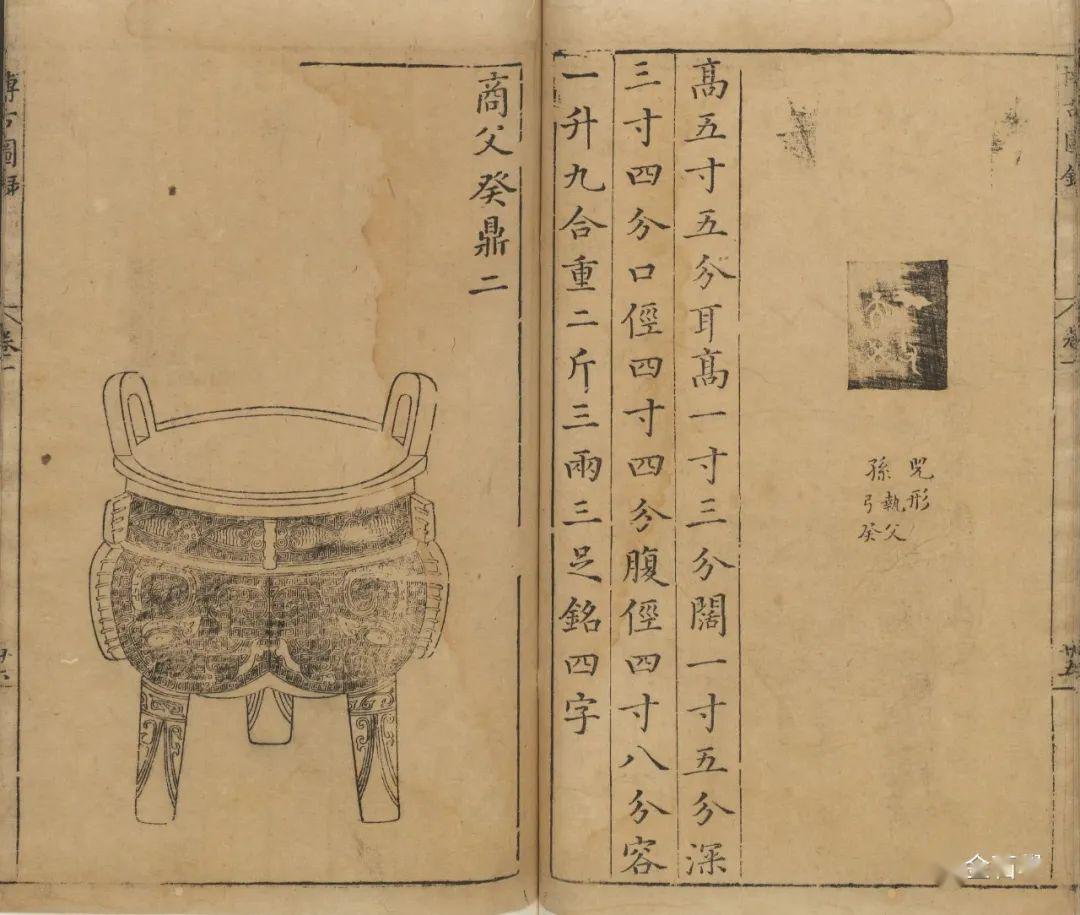 兕形
孫執父
弓癸
高五寸五分耳高一寸三分闊一寸五分深
三寸四分口徑四寸四分腹徑四寸八分容
一升九合重二斤三兩三足銘四字
商父癸鼎二
博古圖錄
卷一
廿六
博古圖錄
卷一
廿五